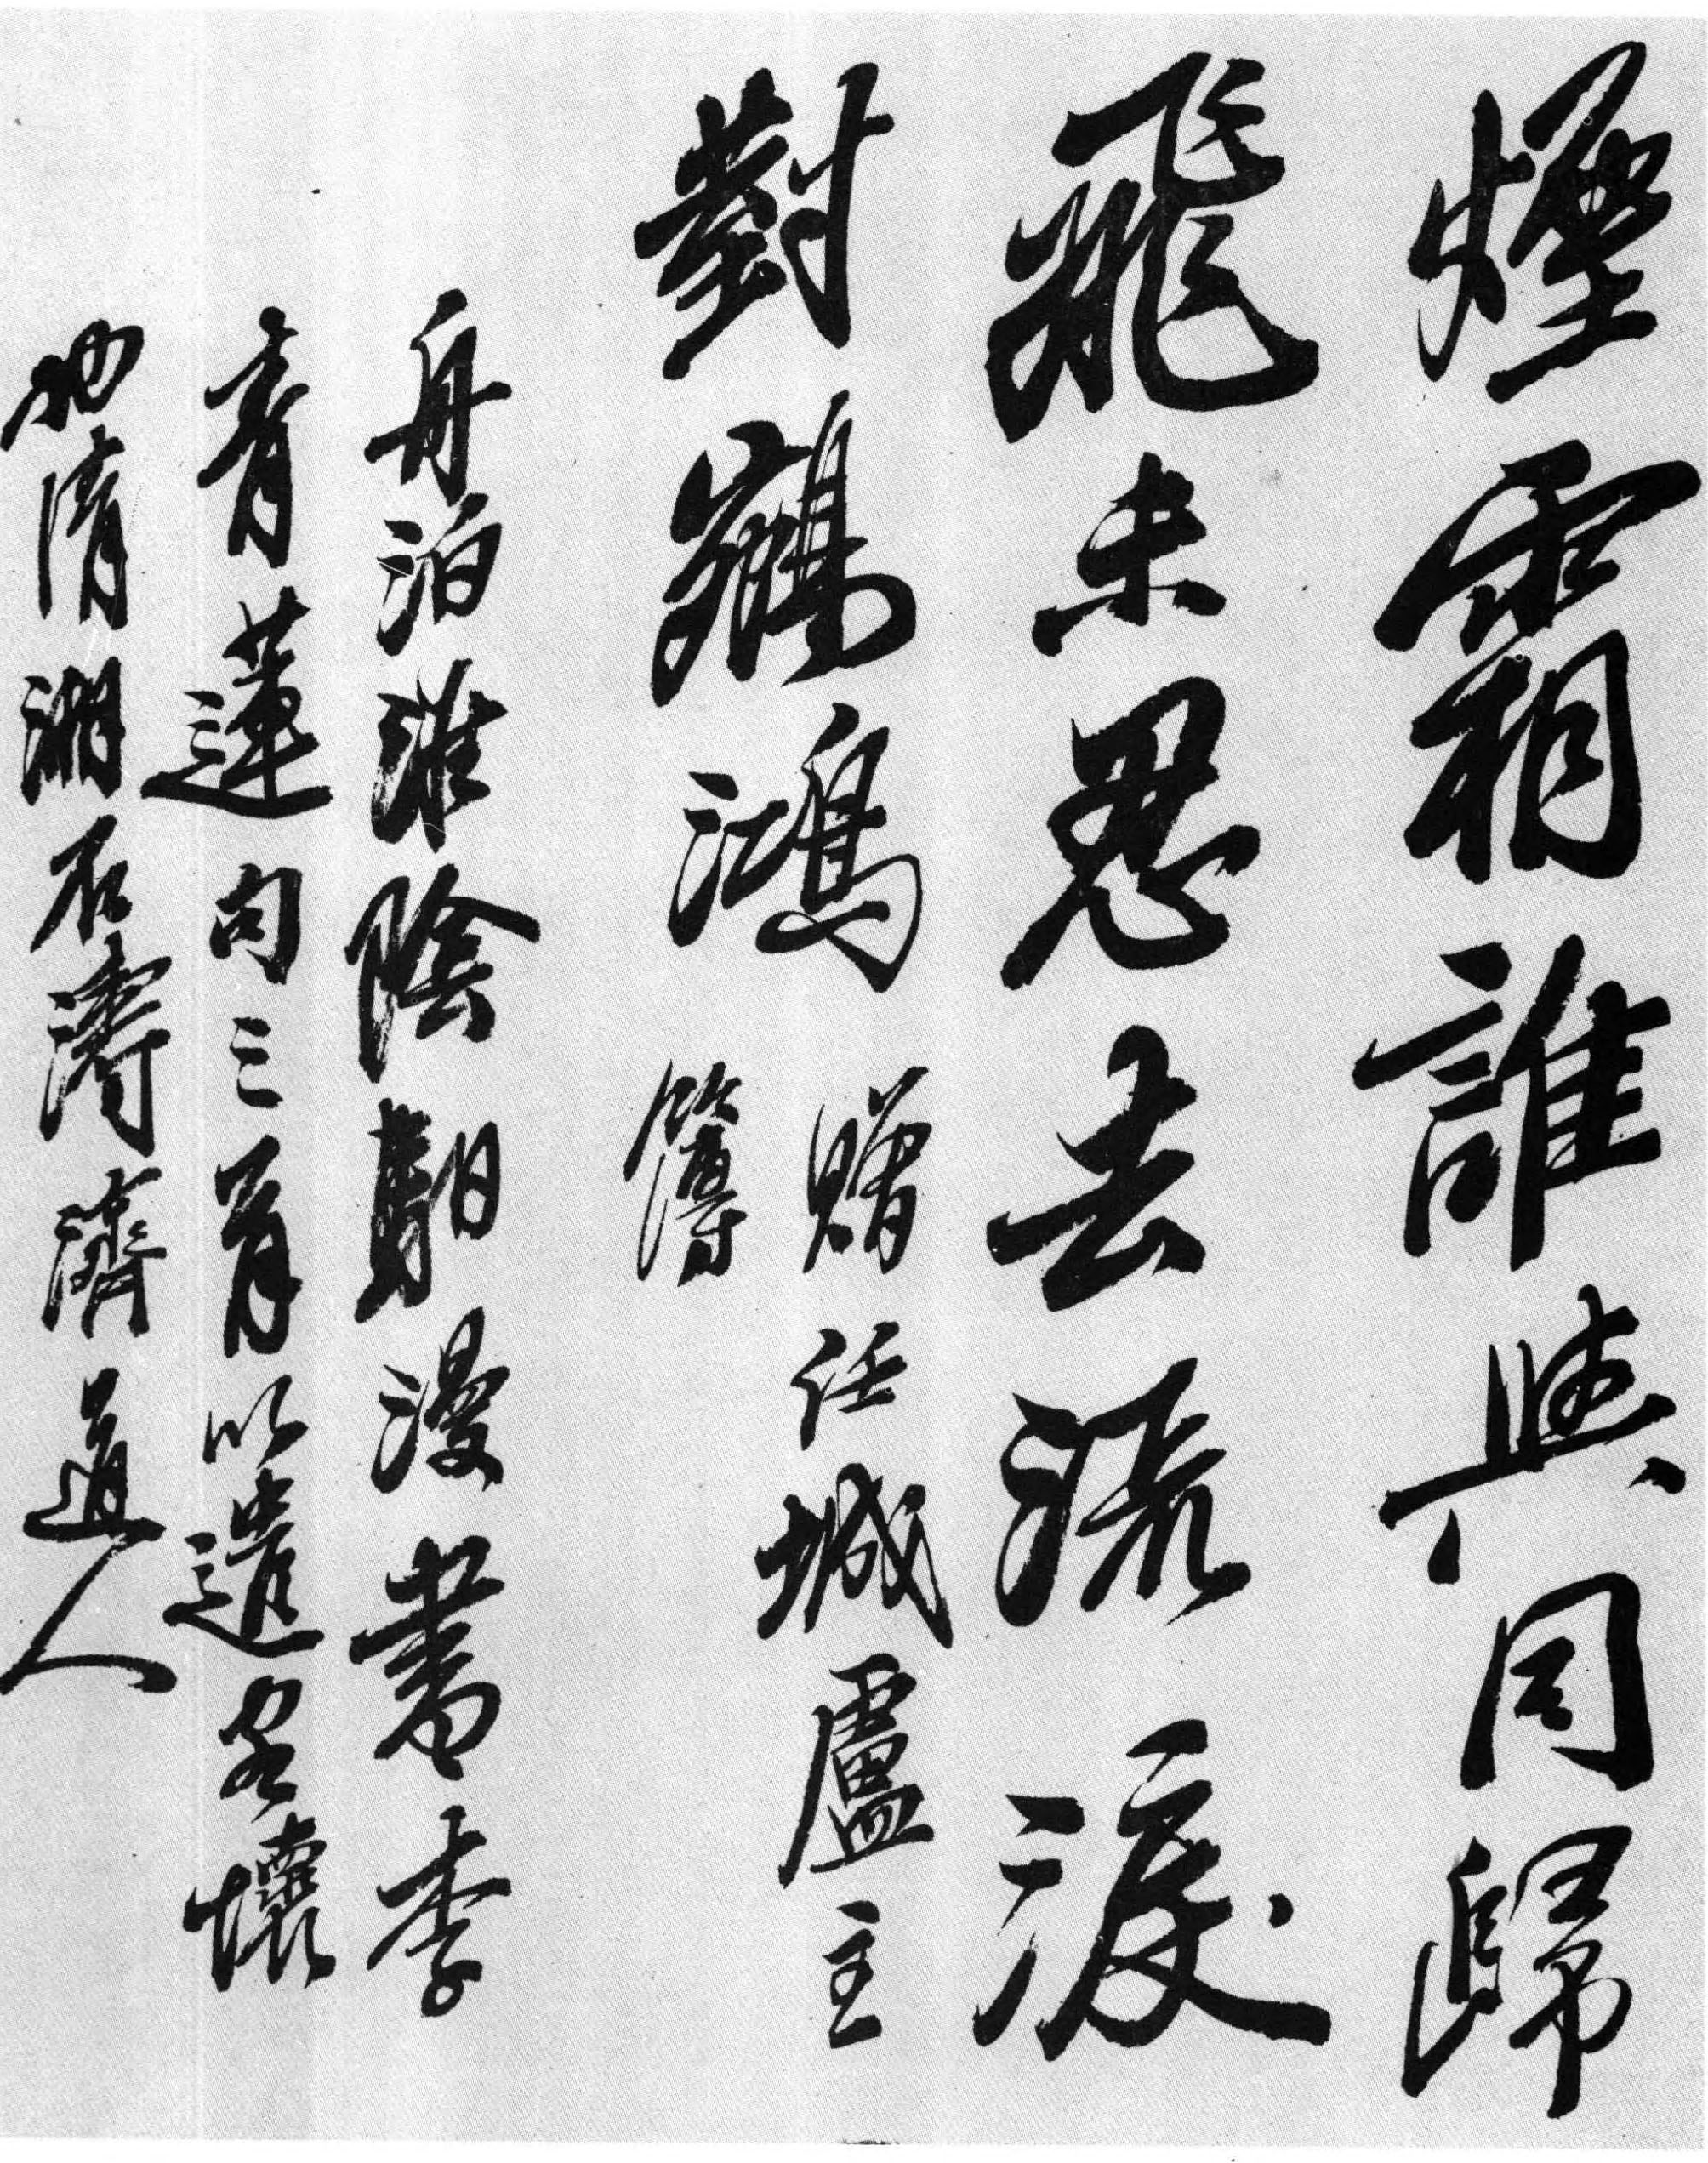 煙霜誰與同歸
飛未忍去流淚
對鵷鴻
贈任城盧主
簿
舟泊淮陰朝漫書李
青蓮句三首以遣客懷
清湘石濤濟道人